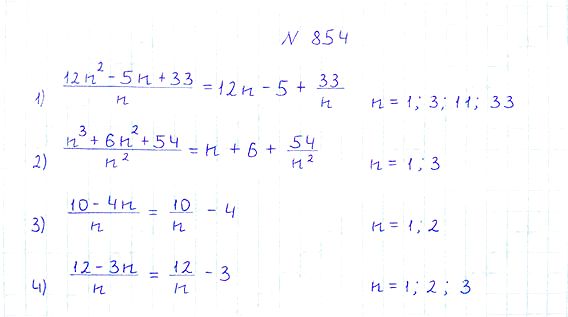 N 854
1) (12n² - 5n + 33)/n = 12n - 5 + 33/n n = 1; 3; 11; 33
2) (n³ + 6n² + 54)/n² = n + 6 + 54/n² n = 1; 3
3) (10 - 4n)/n = 10/n - 4 n = 1, 2
4) (12 - 3n)/n = 12/n - 3 n = 1; 2; 3